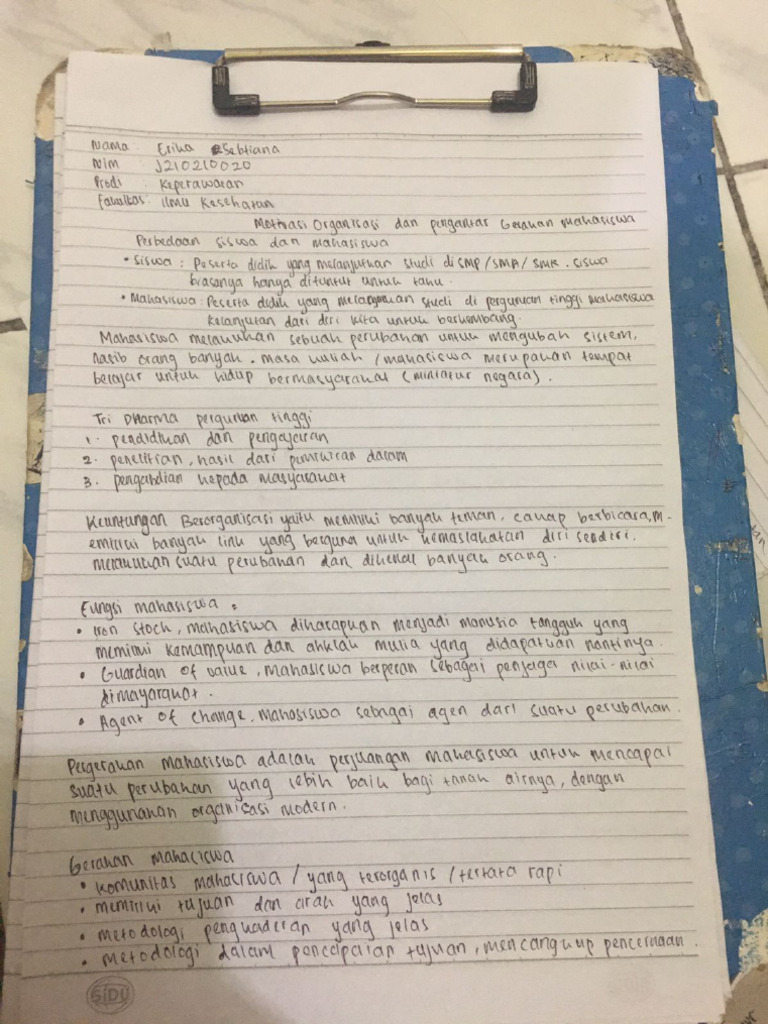 Nama : Erika Sebtiana
Nim : J210210020
Prodi : Keperawatan
Fakultas : Ilmu Kesehatan
Motivasi Organisasi dan pengantar Gerakan Mahasiswa
Perbedaan siswa dan Mahasiswa
• Siswa : Peserta didik yang melanjutkan studi di SMP/SMA/SMK. siswa
biasanya hanya dituntut untuk tahu.
• Mahasiswa : Peserta didik yang melanjutkan studi di perguruan tinggi Mahasiswa
kelanjutan dari diri kita untuk berkembang.
Mahasiswa melakukan sebuah perubahan untuk mengubah sistem,
nasib orang banyak. masa kuliah / mahasiswa merupakan tempat
belajar untuk hidup bermasyarakat (miniatur negara).
Tri Dharma perguruan tinggi
1. pendidikan dan pengajaran
2. penelitian, hasil dari pemikiran dalam
3. pengabdian kepada Masyarakat
Keuntungan Berorganisasi yaitu memiliki banyak teman, cakap berbicara, m-
emiliki banyak link yang berguna untuk kemaslahatan diri sendiri.
melakukan suatu perubahan dan dikenal banyak orang.
Fungsi mahasiswa :
• Iron Stock, mahasiswa diharapkan menjadi manusia tangguh yang
memiliki kemampuan dan ahklak mulia yang didapatkan nantinya.
• Guardian of value, mahasiswa berperan sebagai penjaga nilai-nilai
dimayarakat.
• Agent of change, mahasiswa sebagai agen dari suatu perubahan.
Pergerakan mahasiswa adalah perjuangan mahasiswa untuk mencapai
suatu perubahan yang lebih baik bagi tanah airnya, dengan
menggunakan organisasi modern.
Gerakan mahasiswa
• komunitas mahasiswa / yang terorganis / tertata rapi
• memiliki tujuan dan arah yang jelas
• metodologi pengkaderan yang jelas
• metodologi dalam pencapaian tujuan, mencangkup pencernaan.
SiDU